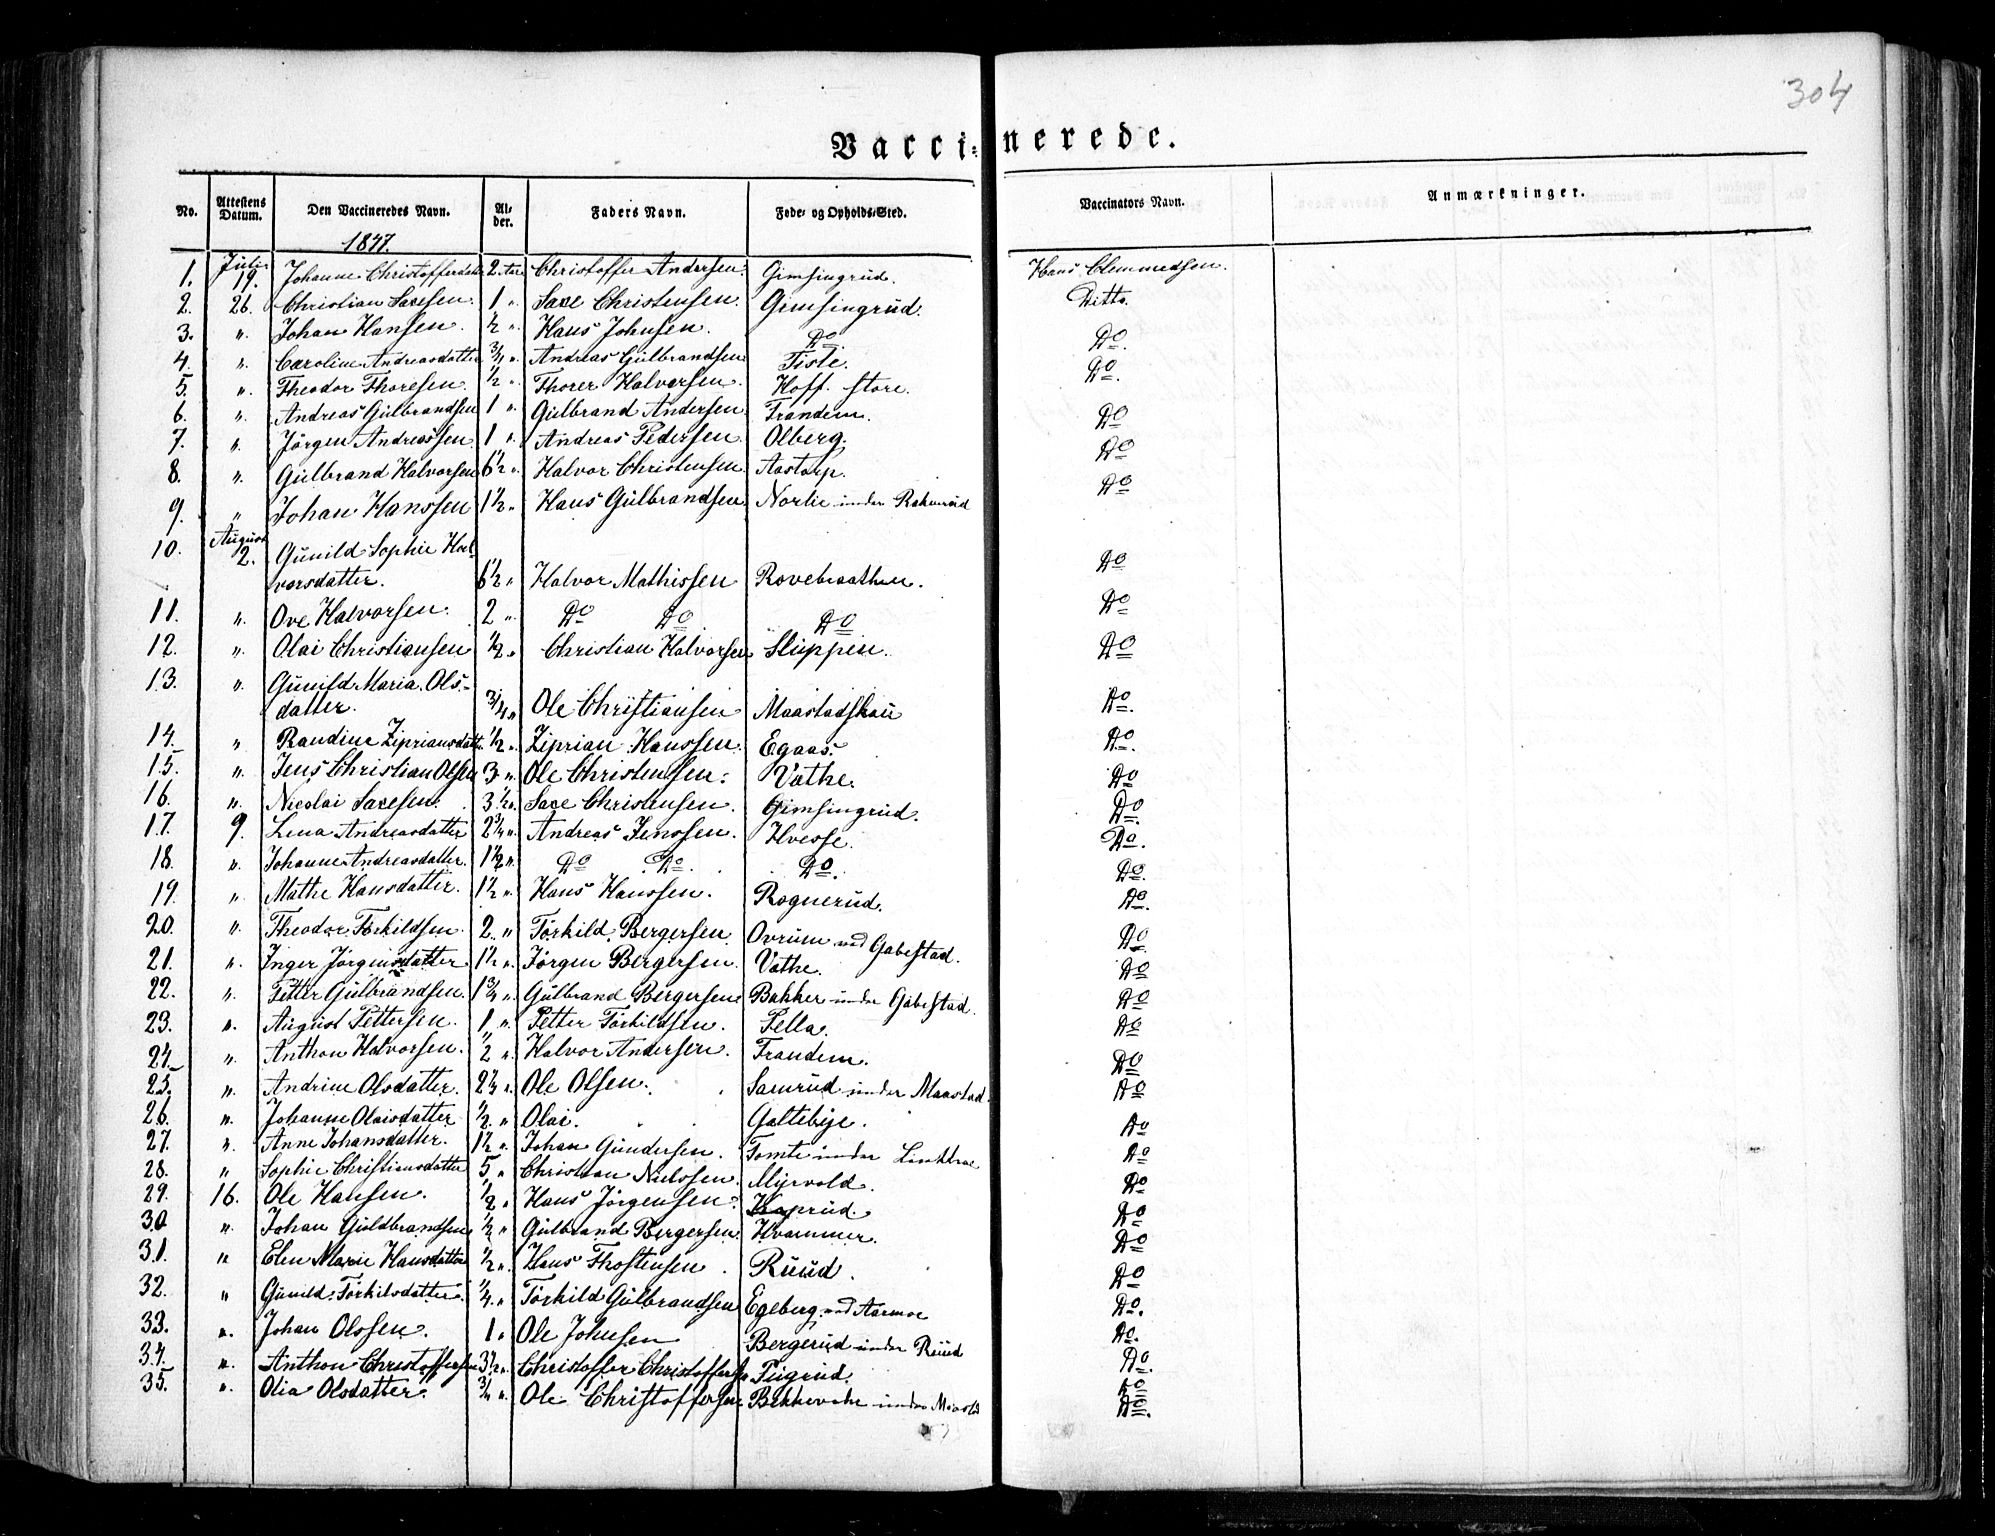 304
Vaccinerede.
No. Attestens Datum. Den Vaccineredes Navn. Alder. Faders Navn. Føde- og Opholds-Sted. Vaccinators Navn. Anmærkninger.
1847.
1. Juli 19. Johanne Christoffersdatt 2 Aar Christoffer Andersen. Gimsingrud. Hans Clemmedsen.
2. 26. Christian Saxesen. 1 " Saxe Christensen. Gimsingrud. Ditto.
3. " Johan Hansen. ½ " Hans Johnsen. Do. Do.
4. " Caroline Andreasdatter ¾ " Andreas Gulbrandsen Tiste. Do.
5. " Theodor Thoresen. ½ " Thorer Halvorsen. Hoff store.
6. " Andreas Gulbrandsen 1 " Gulbrand Andersen Frandem. Do
7. " Jörgen Andreassen. 1 " Andreas Pedersen Olberg. Do
8. " Gulbrand Halvorsen 6½ " Halvor Christensen Aastorp. Do
9. " Johan Hanssen 1½ " Hans Gulbrandsen Norlie under
10. August 2. Gunild Sophie Hal-
vorsdatter. 6½ " Halvor Mathissen Rovebraathen. Do
11. " Ove Halvorsen. 2 " Do Do Do Do
12. " Olai Christiansen ½ " Christian Halvorsen Sluppen. Do
13. " Gunild Maria Ols-
datter. ¾ " Ole Christiansen Maastadskau Do.
14. " Randine Zipriansdatt. ½ " Ziprian Hanssen. Egaas. Do.
15. " Jens Christian Olsen 3 " Ole Christensen. Vathe. Do
16. " Nicolai Saxesen. 3½ " Saxe Christensen. Gimsingrud. Do.
17. 9. Lena Andreasdatter 2¾ " Andreas Jenssen. Hvesse. Do.
18. " Johanne Andreasdatter. 1½ " Do Do. Do. Do.
19. " Mathe Hansdatter. 1½ " Hans Hanssen. Rognerud. Do.
20. " Theodor Törkildsen. 2 " Törkild Bergersen Ovrum ved Gabestad. Do
21. " Inger Jörgensdatter 1½ " Jörgen Bergersen. Vathe. Do
22. " Petter Gulbrandsen. 1¾ " Gulbrand Bergersen Bakker under Gabestad. Do
23. " August Pettersen. 1 " Petter Törkildsen. Pella. Do
24. " Anthon Halvorsen. ½ " Halvor Andersen. Frandem. Do
25. " Andrine Olsdatter. " Ole Olsen. Samrud under Maastad. Do
26. " Johanne Olaisdatter ½ " Olai. Galtebye. Do
27. " Anne Johansdatter. 1½ " Johan Gundersen. Tomte under Do
28. " Sophie Christiansdatter 5 " Christian Nielssen. Myrvold. Do
29. 16. Ole Hansen. ½ " Hans Jörgensen. Do
30 " Johan Guldbrandsen " Gulbrand Bergersen. Kvammer. Do
31. " Elen Marie Hansdatter ½ " Hans Thostensen. Ruud. Do
32. " Gunild Törkilsdatter. ¼ " Törkild Gulbrandsen Egeberg ved Aarmoe Do.
33. " Johan Olssen. 1 " Ole Johnsen Bergerud under Ruud Do.
34. " Anthon Christoffersen 3½ " Christoffer Christoffersen Do.
35. " Olia Olsdatter. ¾ " Ole Christoffersen under Do
Do.